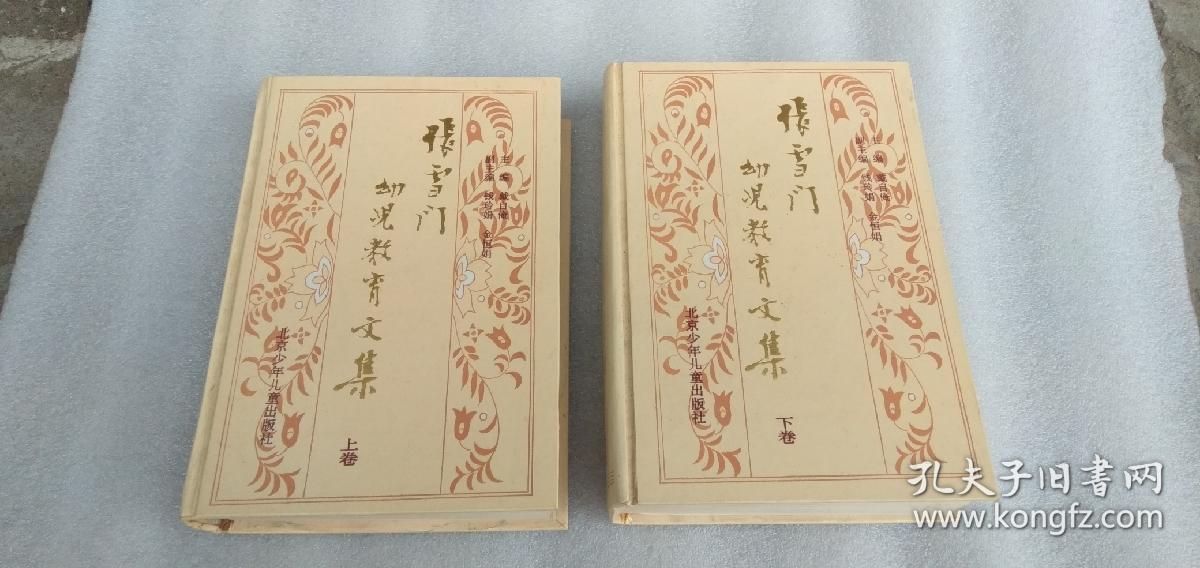 張雪门
幼児教育文集
主编 戴自俺
副主编 钱玲娟 金恒娟
北京少年儿童出版社
上卷
張雪门
幼児教育文集
主编 戴自俺
副主编 钱玲娟 金恒娟
北京少年儿童出版社
下卷
孔夫子旧书网
www.kongfz.com